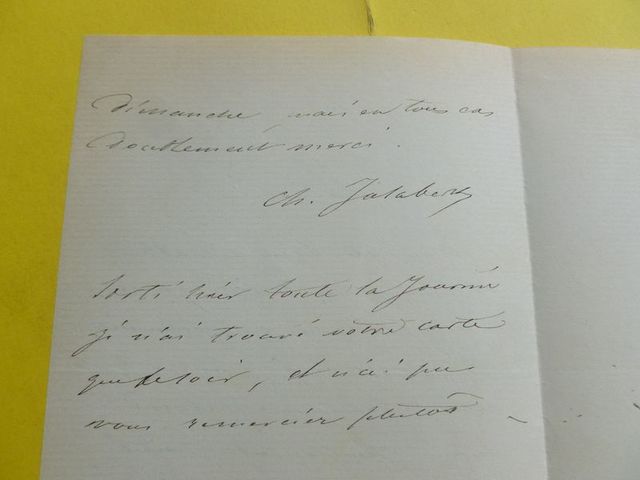 Dimanche, mais en tous cas
Doublement merci.
Ch. Jalabert
Sorti hier toute la Journée
je n'ai trouvé votre carte
que le soir, et n'ai pu
vous remercier plutôt